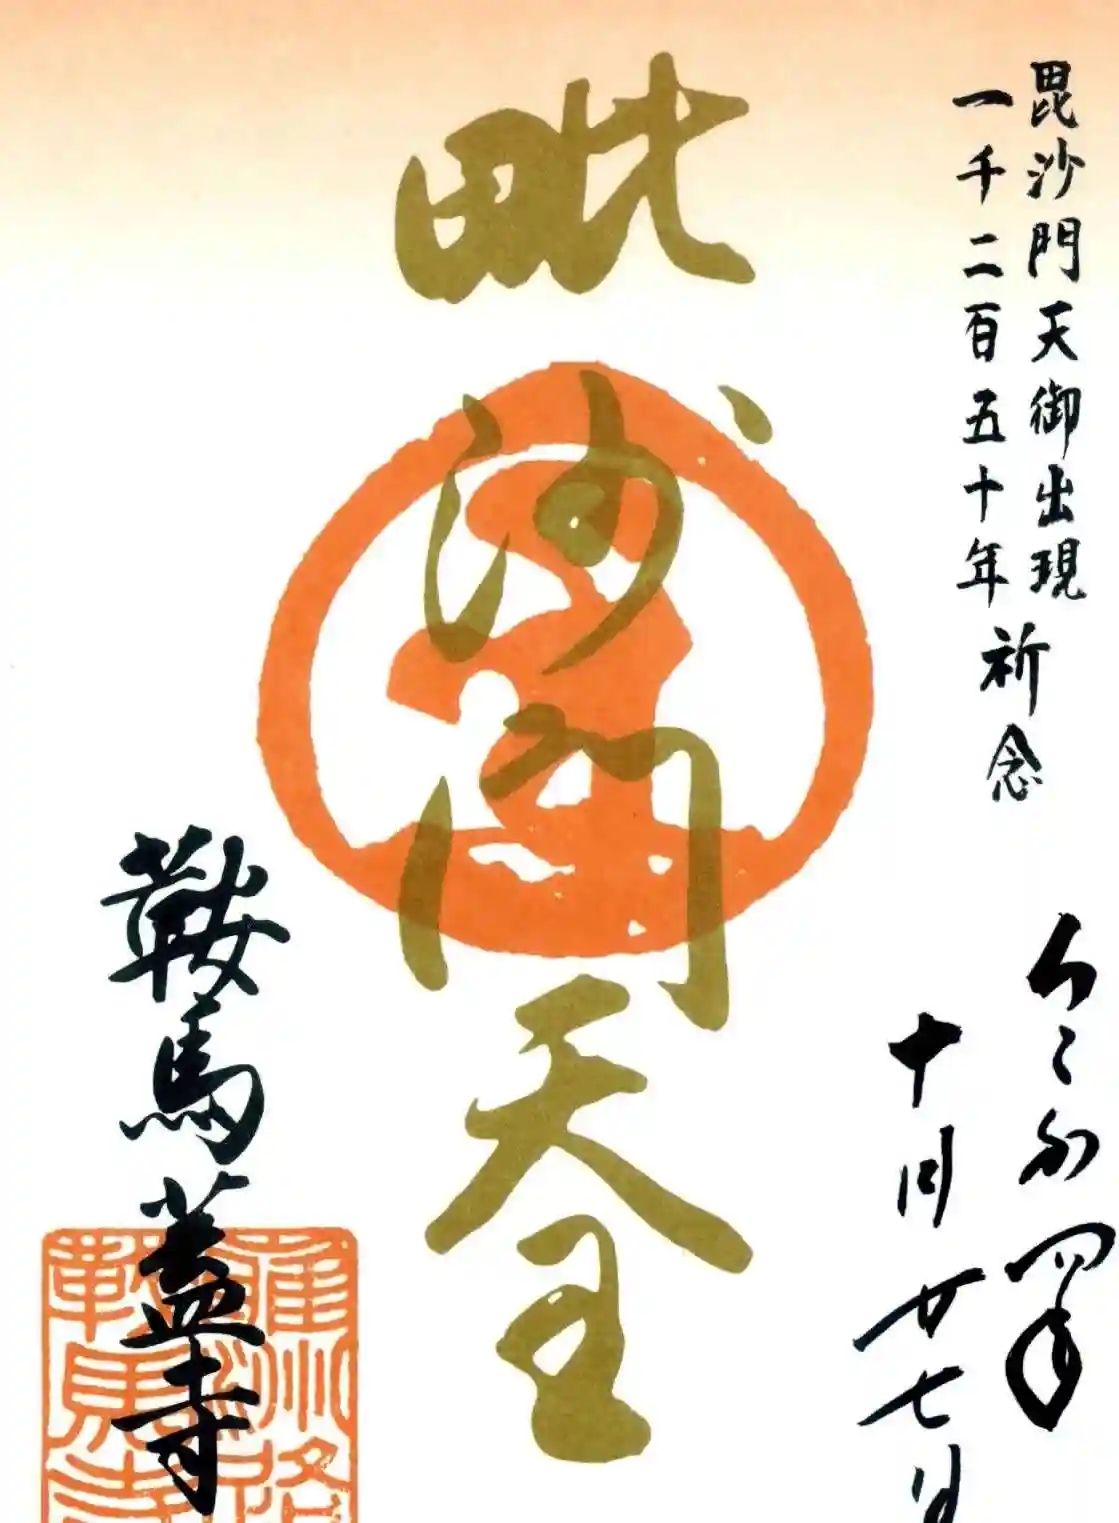 毘沙門天御出現
一千二百五十年
祈念
令和四年
十月廿七日
毗沙門天王
鞍馬蓋寺
雍州路
鞍馬寺